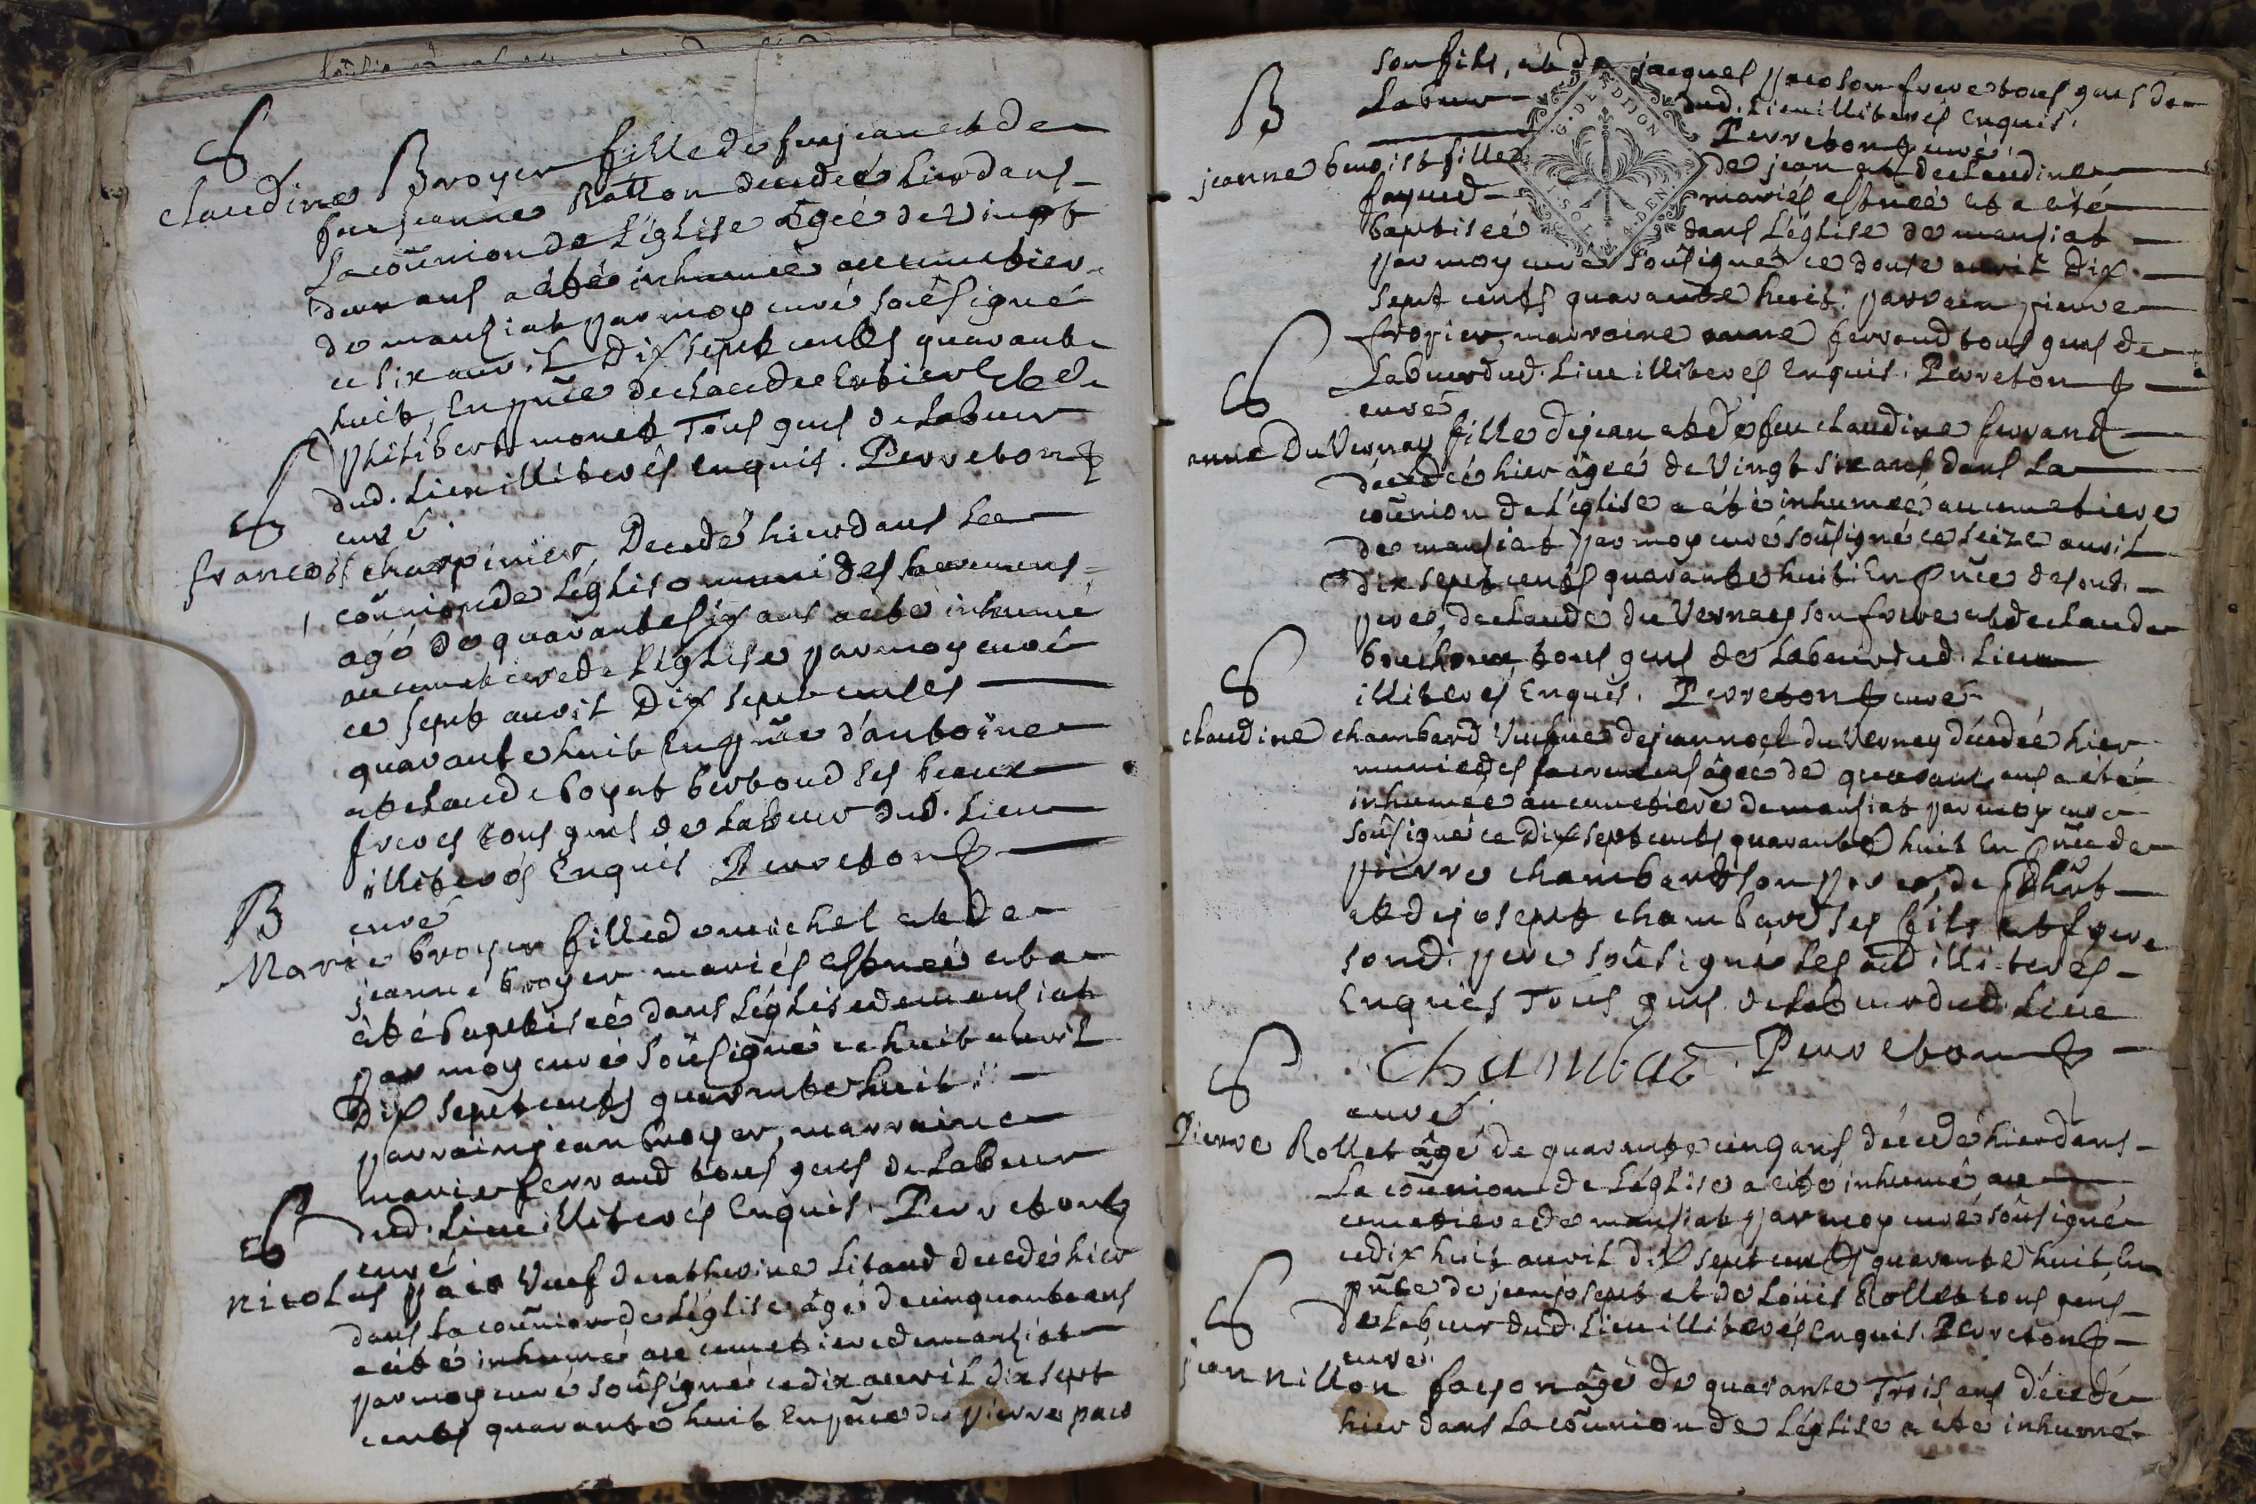 claudine Broyer fille de feu jean et de
feu jeanne Rollon decedeé hier dans
la coũnion de l'église âgeé de vingt
deux ans a été inhumeé au cimetiere
de manziat par moy curé soûsigné
ce six avril Dix sept cents quarante
huit, En pñce de claude et de
philibert monet Tous gens de labeur
dud. lieu illiterés enquis. Perreton
curé.
francois charpinier Decedé hier dans la
coũnion de l'église muni des sacremens
agé de quarante six ans a été inhumé
au cimetiere de l'église par moy curé
ce sept avril Dix sept cents
quarante huit En pñce d'antoine
et claude boyat bertoud ses beaux
freres tous gens de labeur dud. lieu
illiterés Enquis Perreton
curé
Marie broyer fille de michel et de
jeanne broyer mariés est neé et a
été baptiseé dans l'église de manziat
par moy curé soûsigné ce huit avril
Dix sept cents quarante huit
parrain jean broyer, marraine
marie ferrand tous gens de labeur
dud. lieu illiterés Enquis. Perreton
curé
nicolas pacô veuf de catherine Litaud decedé hier
dans la coũnion de l'église âgé de cinquante ans
a été inhumé au cimetiere de manziat
par moy curé soûsigné ce dix avril dix sept
cents quarante huit En pñce de pierre paco
B
son fils, et de jacques paco son frere tous gens de
Labeur dud. Lieu illiterés Enquis.
Perreton curé
G. DE DIJON
jeanne benoist fille de jean et de claudine
mariés est neé et a été
baptiseé dans l'église de manziat
par moy curé soûsigné ce douse avril Dix
sept cents quarante huit: parrain pierre
fropier, marraine anne ferrand tous gens de
Labeur dud. Lieu illiterés Enquis. Perreton
curé
anne DuVernay fille de jean et de feu claudine ferrand
décedeé hier âgeé de vingt six ans dans La
coũnion de L'église a été inhumeé au cimetiere
de manziat par moy curé soûsigné ce seize avril
dix sept cents quarante huit: En pñce de sond.
pere, de claude du Vernay son frere et de claude
bouchoux tous gens de Labeur dud. Lieu
illiterés Enquis. Perreton curé
claudine chambard Veufue de jean noel du Verney décedeé hier
munie des sacremens âgeé de quarante ans a été
inhumeé au cimetiere de manziat par moy curé
soûsigné ce Dix sept cents quarante huit En pñce de
pierre chambard son pere, de
et de joseph chambard ses fils et frere
sond. pere soûsigné les illiterés
Enquis Tous gens de Labeur dud. Lieu
Chambar Perreton
curé
Pierre Rollet âgé de quarante cinq ans décedé hier dans
La coũnion de L'église a été inhumé au
cimetiere de manziat par moy curé soûsigné
ce dix huit avril dix sept cents quarante huit En
pñce de jean joseph et de Loüis Rollet tous gens
de Labeur dud. Lieu illiterés Enquis. Perreton
curé.
jean nillon façon âgé de quarante Trois ans décedé
hier dans La coũnion de L'église a été inhumé